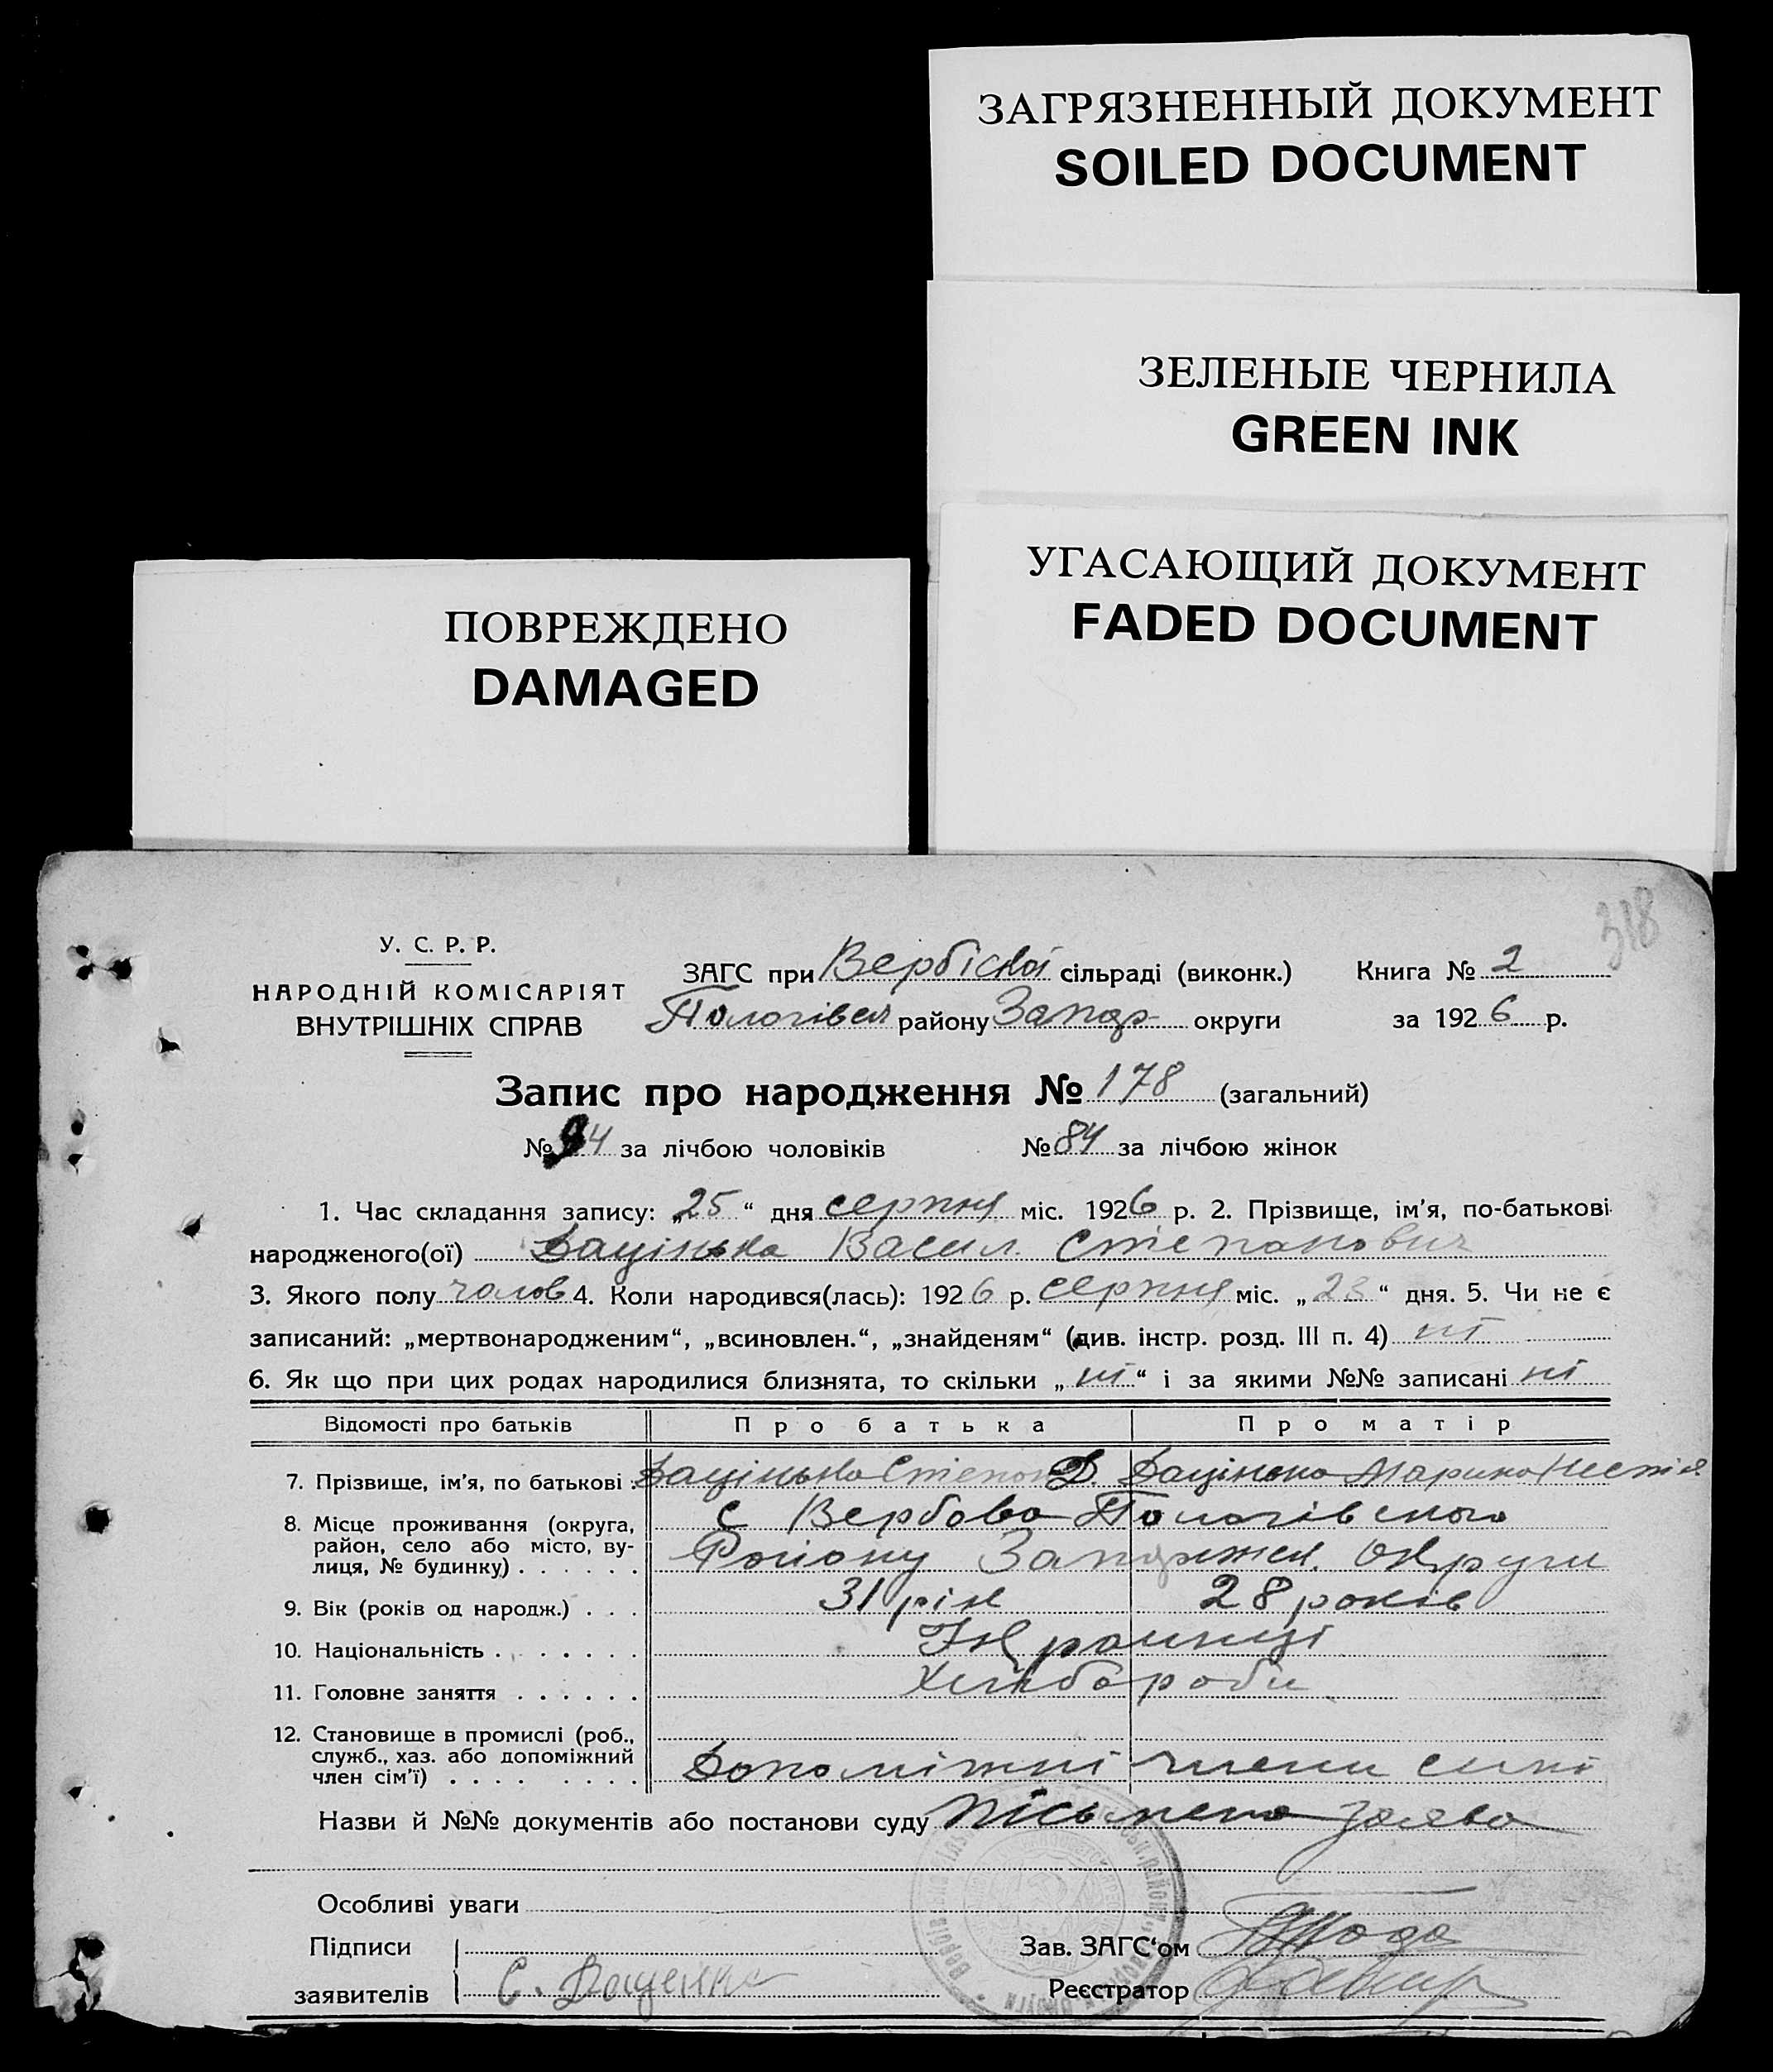 ЗАГРЯЗНЕННЫЙ ДОКУМЕНТ
SOILED DOCUMENT
ЗЕЛЕНЫЕ ЧЕРНИЛА
GREEN INK
УГАСАЮЩИЙ ДОКУМЕНТ
FADED DOCUMENT
ПОВРЕЖДЕНО
DAMAGED
318
У. С. Р. Р.
НАРОДНІЙ КОМІСАРІЯТ
ВНУТРІШНІХ СПРАВ
ЗАГС при Вербіської сільраді (виконк.) Книга № 2
Пологівск району Запор округи за 1926 р.
Запис про народження № 178 (загальний)
№ 94 за лічбою чоловіків № 84 за лічбою жінок
1. Час складання запису: „25“ дня серпня міс. 1926 р. 2. Прізвище, ім'я, по-батькові
народженого(ої) Дацінька Васил Степанович
3. Якого полу чолов 4. Коли народився(лась): 1926 р. серпня міс. „23“ дня. 5. Чи не є
записаний: „мертвонародженим“, „всиновлен.“, „знайденям“ (див. інстр. розд. III п. 4) ні
6. Як що при цих родах народилися близнята, то скільки „ні“ і за якими №№ записані ні
Відомості про батьків Про батька Про матір
7. Прізвище, ім'я, по батькові: Дацінька Степан Д. Дацінька Марина
8. Місце проживання (округа,
район, село або місто, ву-
лиця, № будинку) . . . . . .
с Вербова Пологівського
Району Запоржск. Округи
9. Вік (років од народж.) . . . 31 рік 28 років
10. Національність . . . . . . . Українці
11. Головне заняття . . . . . . Хліборобы
12. Становище в промислі (роб.,
служб., хаз. або допоміжний
член сім'ї) . . . . . . . .
Допоміжні члени симї
Назви й №№ документів або постанови суду пісьмена заява
Особливі уваги
Підписи
заявителів С. Даценко
Зав. ЗАГС‘ом
Реєстратор